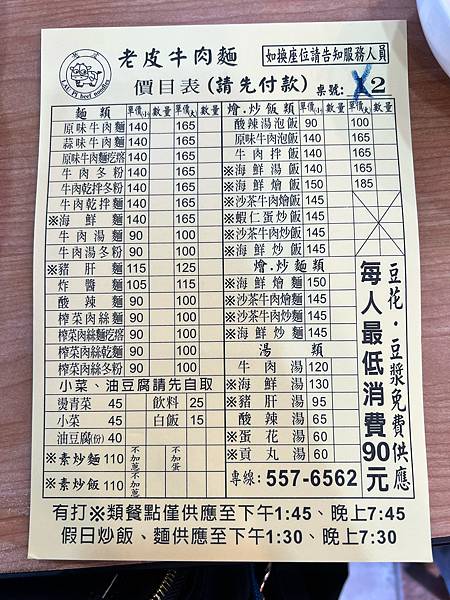 老皮牛肉麵
如換座位請告知服務人員
價目表(請先付款) 桌號: 2
麵類 單價(小) 數量 單價(大) 數量
原味牛肉麵 140 165
蒜味牛肉麵 140 165
原味牛肉麵疙瘩 140 165
牛肉冬粉 140 165
牛肉乾拌冬粉 140 165
牛肉乾拌麵 140 165
※海鮮麵 140 165
牛肉湯麵 90 100
牛肉湯冬粉 90 100
※豬肝麵 115 125
炸醬麵 105 115
酸辣麵 90 100
榨菜肉絲麵 90 100
榨菜肉絲麵疙瘩 90 100
榨菜肉絲乾麵 90 100
榨菜肉絲冬粉 90 100
小菜、油豆腐請先自取
燙青菜 45 飲料 25
小菜 45 白飯 15
油豆腐(份) 40
※素炒麵 110 不加蔥 不加蛋
※素炒飯 110 不加蔥
燴.炒飯類 單價(小) 數量 單價(大) 數量
酸辣湯泡飯 90 100
原味牛肉泡飯 140 165
牛肉拌飯 140 165
※海鮮湯飯 140 165
※海鮮燴飯 150 185
※沙茶牛肉燴飯 145
※蝦仁蛋炒飯 145
※沙茶牛肉炒飯 145
※海鮮炒飯 145
燴.炒麵類
※海鮮燴麵 150
※沙茶牛肉燴麵 145
※沙茶牛肉炒麵 145
※海鮮炒麵 145
湯類
牛肉湯 120
※海鮮湯 130
※豬肝湯 95
酸辣湯 65
※蛋花湯 60
※貢丸湯 60
豆花.豆漿免費供應
每人最低消費90元
專線: 557-6562
有打※類餐點僅供應至下午1:45、晚上7:45
假日炒飯、麵供應至下午1:30、晚上7:30